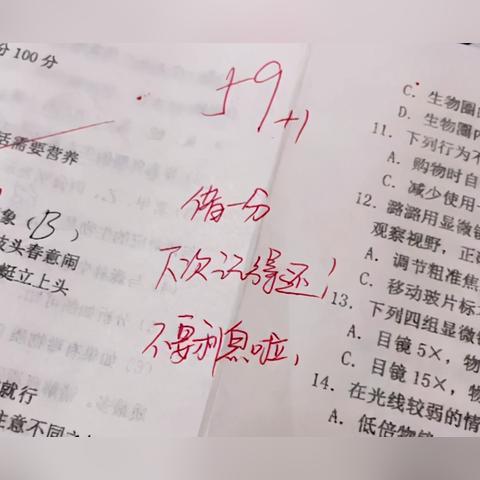 分 100 分
59
+1
借一分
下次记得还！
不要利息啦，
活需要营养
象（B）
枝头春意闹
蜓立上头
就行
注意不同之
C. 生物圈
D. 生物圈
11. 下列行为不
A. 购物时自
C. 减少使用
12. 潞潞用显微镜
观察视野，正
A. 调节粗准焦
C. 移动玻片标
13. 下列四组显微镜
A. 目镜 5×，物
C. 目镜 15×，物
14. 在光线较弱的情
A. 低倍物镜